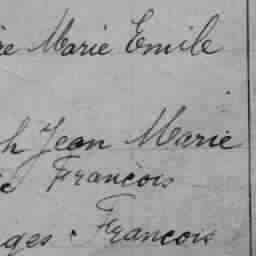 re Marie Emile
h Jean Marie
ie François
ges. François